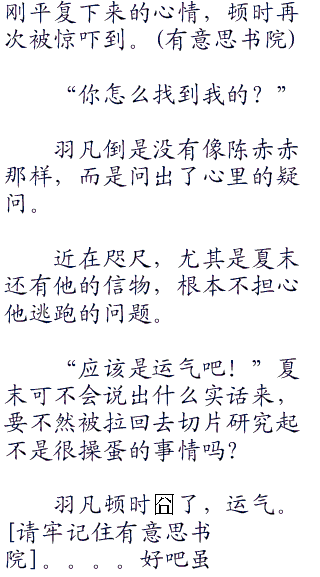 刚平复下来的心情，顿时再
次被惊吓到。(有意思书院)
“你怎么找到我的？”
羽凡倒是没有像陈赤赤
那样，而是问出了心里的疑
问。
近在咫尺，尤其是夏末
还有他的信物，根本不担心
他逃跑的问题。
“应该是运气吧！”夏
末可不会说出什么实话来，
要不然被拉回去切片研究起
不是很操蛋的事情吗？
羽凡顿时囧了，运气。
[请牢记住有意思书
院]。。。。好吧虽